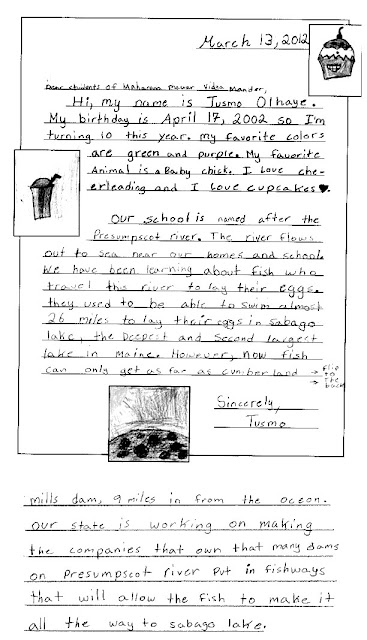 March 13, 2012
Dear students of Maharana Mewar Vidya Mander,
Hi, my name is Tusmo Olhaye.
My birthday is April 17, 2002 so I'm
turning 10 this year. my favorite colors
are green and purple. My favorite
Animal is a Baby chick. I love che-
erleading and I love cupcakes♥.
Our school is named after the
Presumpscot river. The river flows
out to sea near our homes and school.
We have been learning about fish who
travel this river to lay their eggs.
they used to be able to swim almost
26 miles to lay their eggs in sabago
lake, the Deepest and second largest
lake in Maine. However, now fish
can only get as far as cumberland → flip
to
→ the
back
Sincerely,
Tusmo
mills dam, 9 miles in from the ocean.
our state is working on making
the companies that own that many dams
on presumpscot river put in fishways
that will allow the fish to make it
all the way to sabago lake.